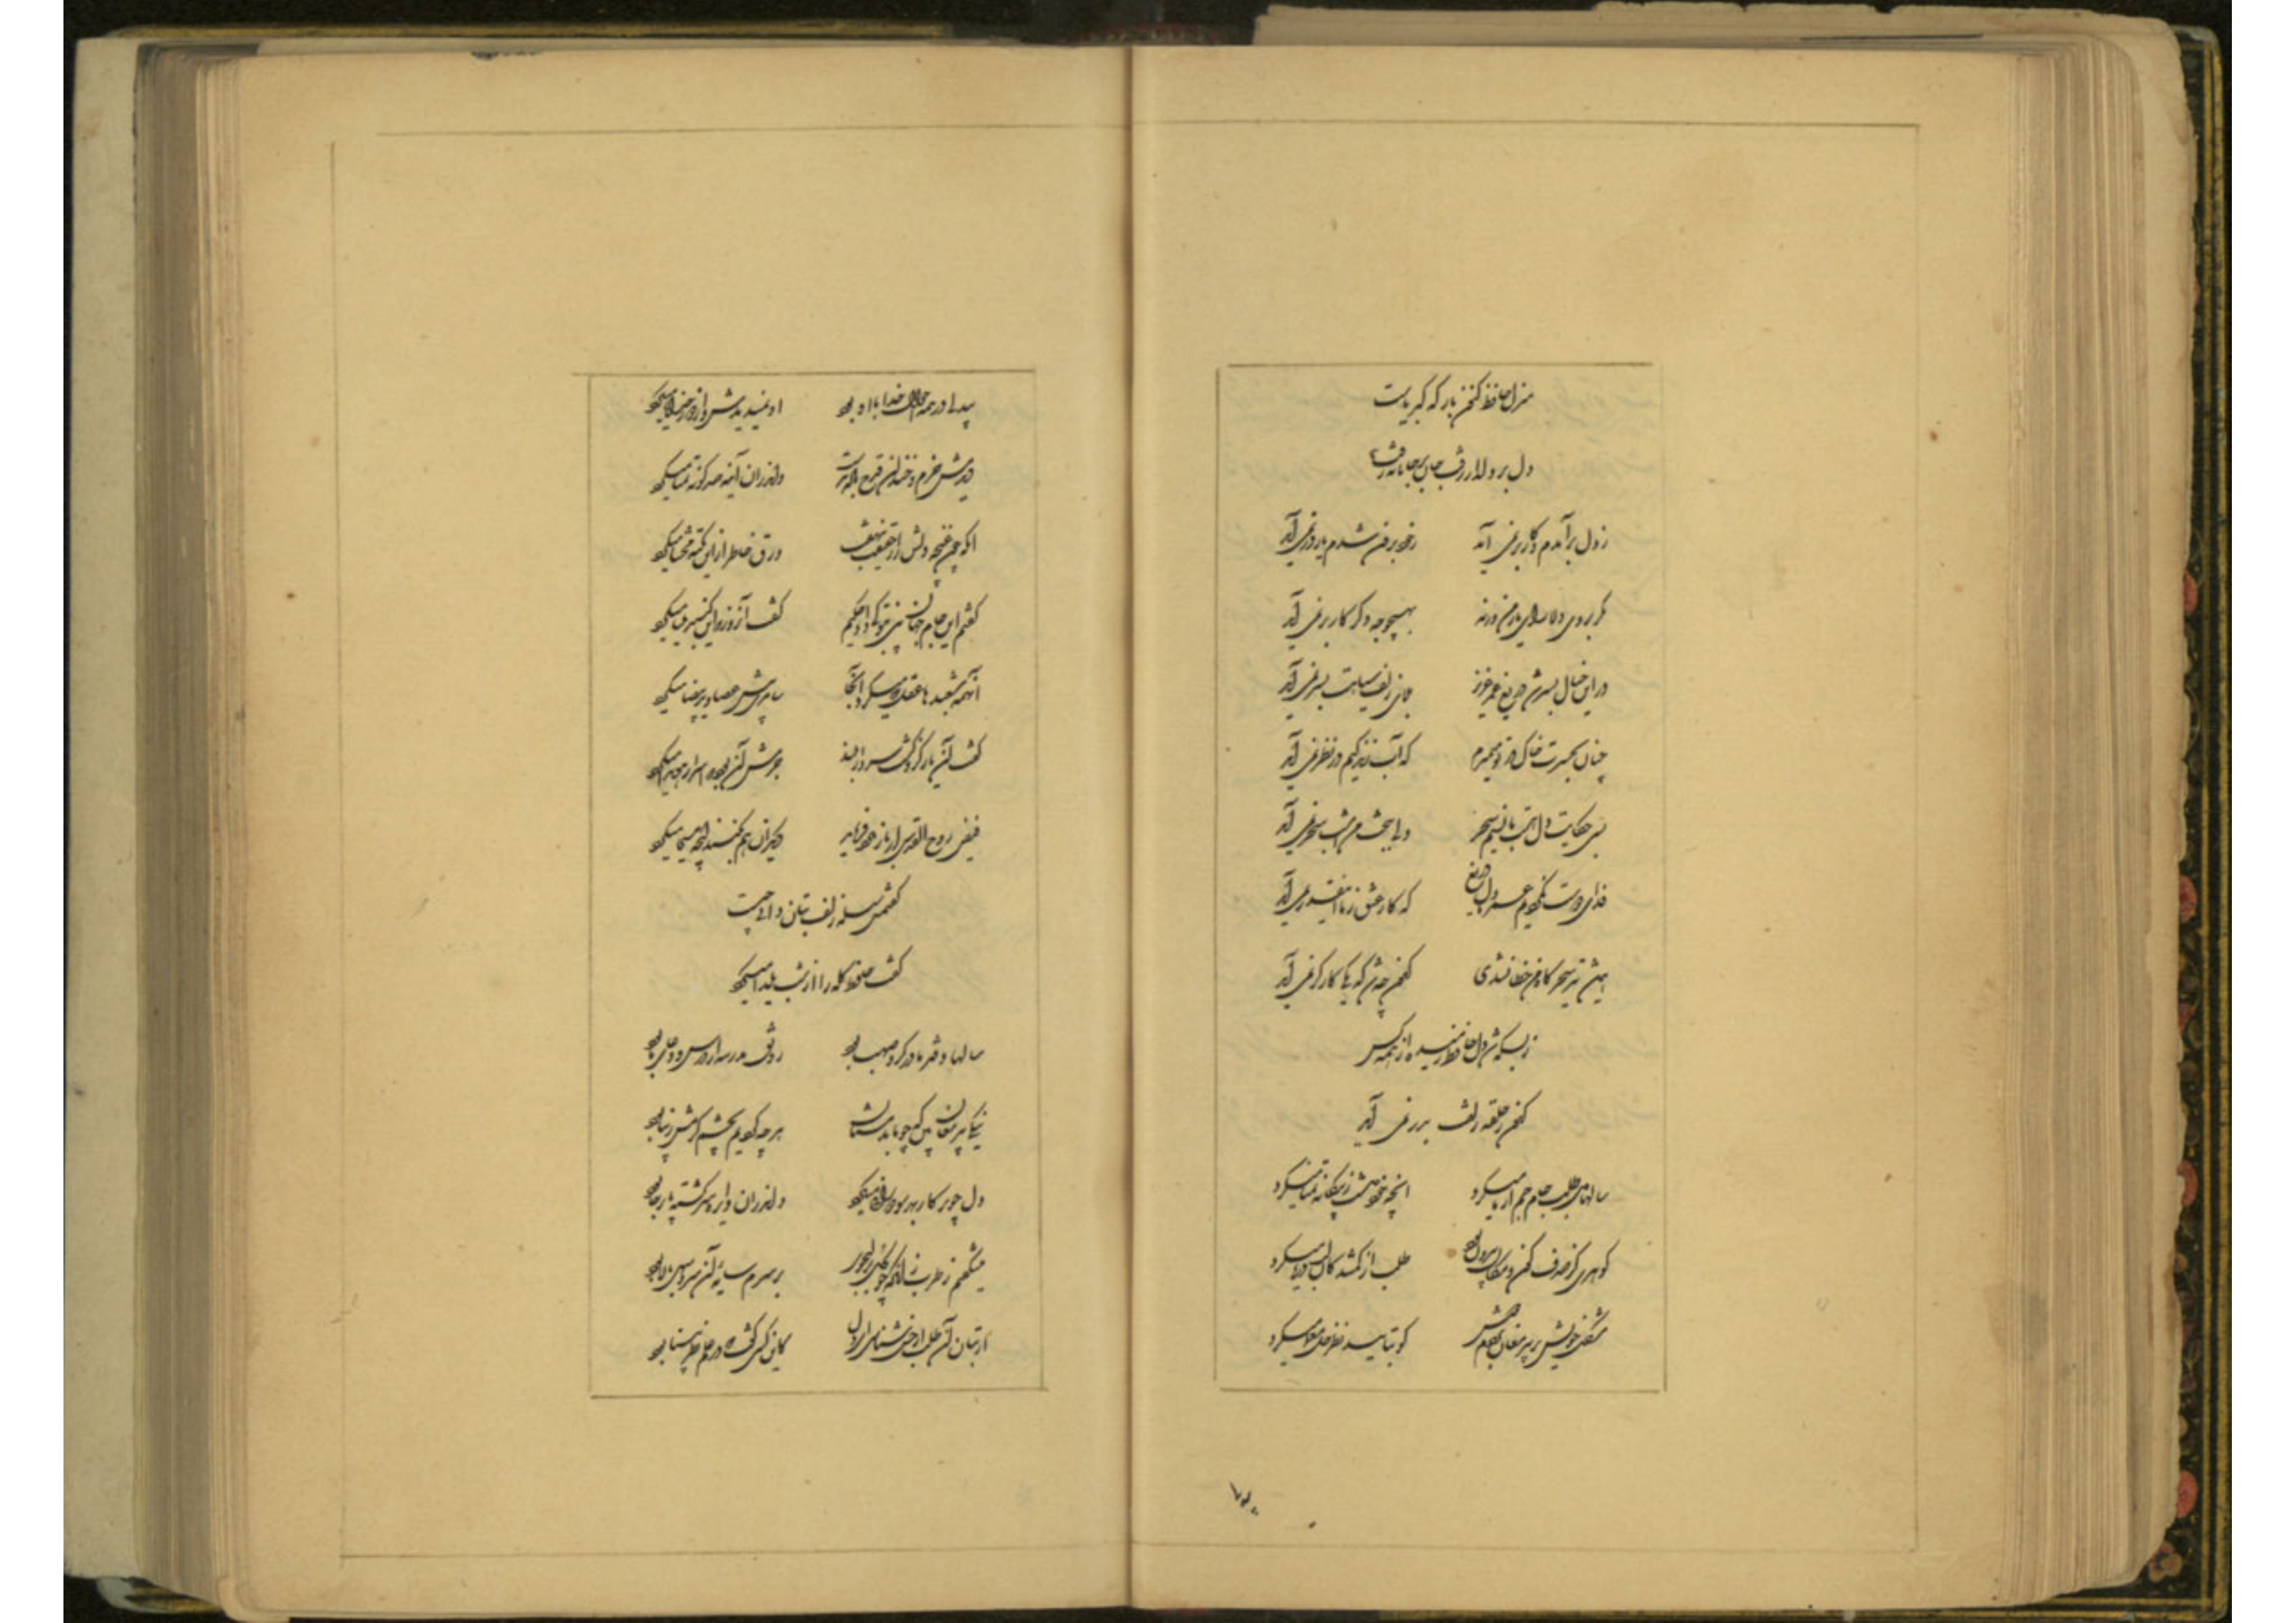 منزل حافظ کنون بارگه کبریاست
دل بر دلدار رفت جان بر جانانه شد
ز دل برآمدم و کار بر نمی آید ز خود برون شدم و یار در نمی آید
مگر بروی دلارای یار من ورنه بهیچوجه دگر کار بر نمی آید
در این خیال بسر شد دریغ عمر عزیز بلای زلف سیاهت بسر نمی آید
چنان بحسرت خاک در تو میمیرم که آب زندگیم در نظر نمی آید
بسی حکایت دل هست با نسیم سحر ولی ببخت من امشب سحر نمی آید
فدای دوست نکردیم عمر و مال دریغ که کار عشق ز ما اینقدر نمی آید
همیشه تیر سحرگاه من خطا نشدی کنون چه شد که یکی کارگر نمی آید
ز بسکه شد دل حافظ رمیده از همه کس
کنون ز حلقه زلفت بدر نمی آید
سالها دل طلب جام جم از ما میکرد آنچه خود داشت ز بیگانه تمنا میکرد
گوهری کز صدف کون و مکان بیرون بود طلب از گمشدگان لب دریا میکرد
مشکل خویش بر پیر مغان بردم دوش کو بتایید نظر حل معما میکرد
بیدلی در همه احوال خدا با او بود او نمیدیدش و از دور خدایا میکرد
دیدمش خرم و خندان قدح باده بدست و اندران آینه صد گونه تماشا میکرد
آنکه چون غنچه دلش راز حقیقت بنهفت ورق خاطر از این نکته محشا میکرد
گفتم این جام جهان بین بتو کی داد حکیم گفت آنروز که این گنبد مینا میکرد
آنهمه شعبدها عقل که میکرد آنجا سامری پیش عصا و ید بیضا میکرد
گفت آن یار کزو گشت سر دار بلند جرمش آن بود که اسرار هویدا میکرد
فیض روح القدس ار باز مدد فرماید دیگران هم بکنند آنچه مسیحا میکرد
گفتمش سلسله زلف بتان از پی چیست
گفت حافظ گله از شب یلدا میکرد
سالها دفتر ما در گرو صهبا بود رونق مدرسه از درس و دعای ما بود
نیکی پیر مغان بین که چو ما بدمستان هر چه کردیم بچشم کرمش زیبا بود
دل چو پرگار بهر سو دورانی میکرد و اندران دایره سرگشته پا برجا بود
میشکفتم ز طرب زانکه چو گل بر لب جوی بر سرم سایه آن سرو سهی بالا بود
از بتان آن طلب ار حسن شناسی ای دل کاین کسی گفت که در علم نظر بینا بود